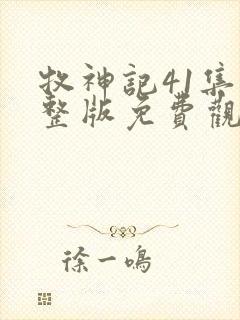 牧神記41集
整版免費觀
徐一鳴